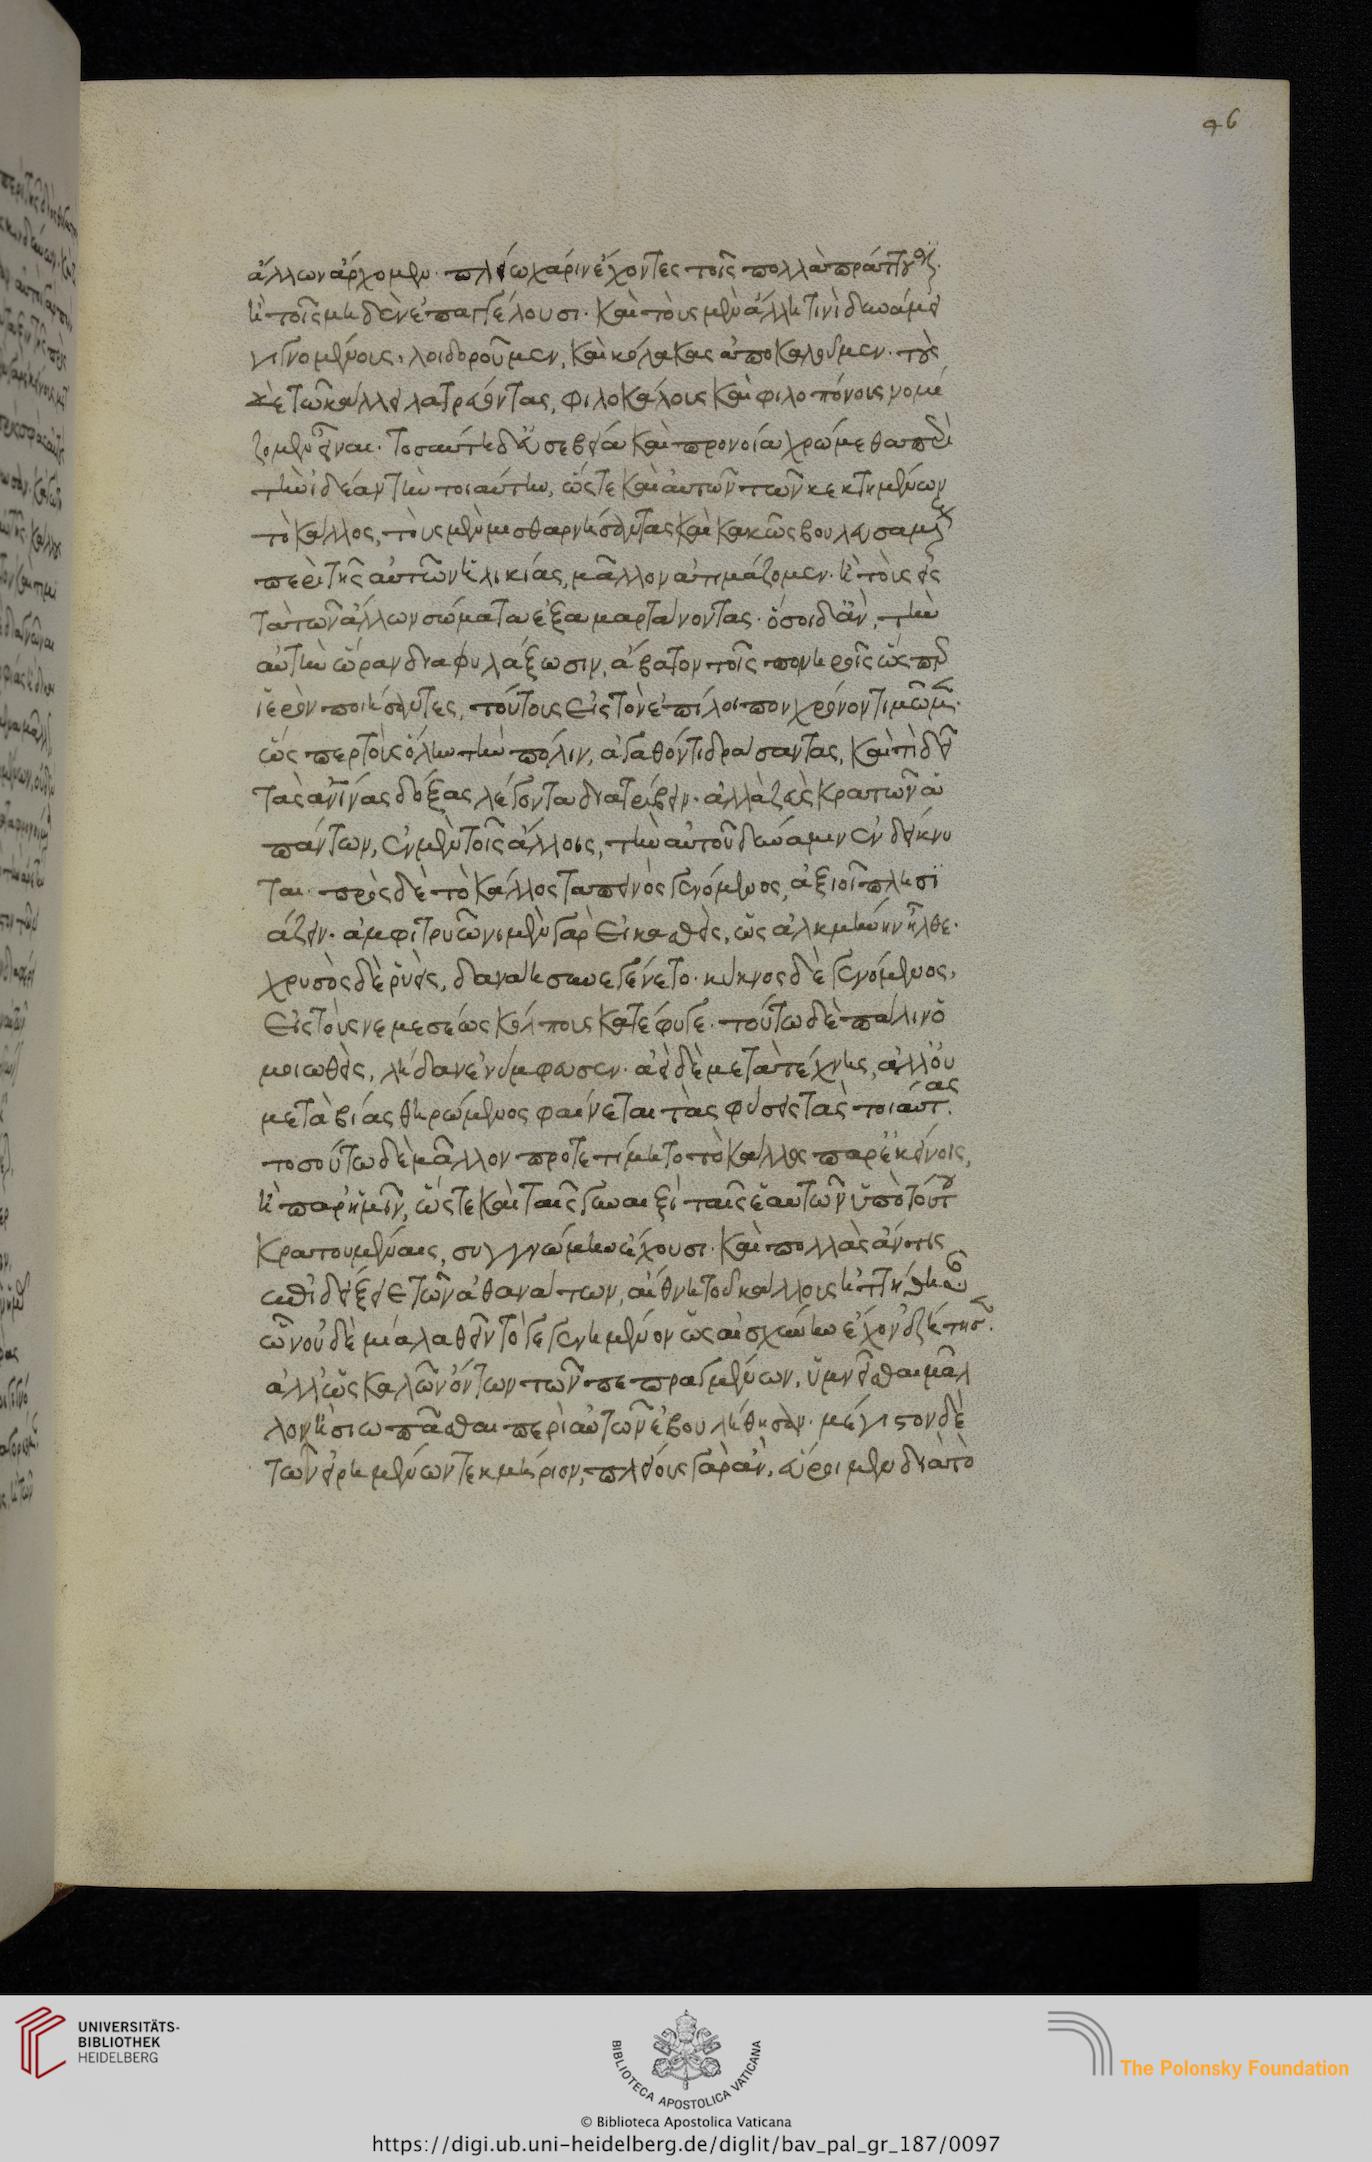 ἄλλων ἄρχομεν· πλείω χάριν ἔχοντες τοῖς πολλὰ πράττουσι·
ἢ τοῖς μηδὲν ἐπαγγέλουσι· καὶ τοὺς μὲν ἄλλη τινὶ δυνάμει
γιγνομένοις, λοιδοροῦμεν, καὶ κόλακας ἀποκαλοῦμεν· τοὺς
δὲ τῶ κάλλει λατρεύοντας, φιλοκάλοις καὶ φιλοπόνοις νομί
ζομεν εἶναι· τοσαύτη δ' εὐσεβεία καὶ προνοία χρώμεθα περὶ
τὴν ἰδέαν τὴν τοιαύτην, ὥστε καὶ αὐτῶν τῶν κεκτημένων
τὸ κάλλος, τοὺς μὲν μισθαρνήσαντας καὶ κακῶς βουλευσαμένους
περὶ τῆς αὐτῶν ἡλικίας, μᾶλλον ἀτιμάζομεν· ἢ τοὺς εἰς
τὰ τῶν ἄλλων σώματα ἐξαμαρταίνοντας· ὅσοι δ' ἂν, τὴν
αὐτὴν ὥραν διαφυλάξωσιν, ἄβατον τοῖς πονηροῖς ὥσπερ
ἱερὸν ποιήσαντες, τούτους εἰς τὸν ἐπίλοιπον χρόνον τιμῶμεν·
ὥσπερ τοὺς ὅλην τὴν πόλιν, ἀγαθόν τι δράσαντας, καὶ τί δεῖ
τὰς ἀνΐνας δόξας λέγοντα διατρίβειν· ἀλλὰ ζεὺς κρατῶν ἁ
πάντων, ἐν μὲν τοῖς ἄλλοις, τὴν αὐτοῦ δύναμιν ἐνδείκνυ
ται· πρὸς δὲ τὸ κάλλος ταπεινὸς γενόμενος, ἀξιοῖ πλησϊ
άζειν· ἀμφιτρύωνι μὲν γὰρ εἰκασθεὶς, ὡς ἀλκμήνην ἦλθε·
χρυσὸς δὲ ῥυεὶς, δανάη συνεγένετο· κύκνος δὲ γενόμενος,
εἰς τοὺς νεμεσέως κόλπους κατέφυγε· τούτω δὲ πάλιν ὁ
μοιωθεὶς, λήδαν ἐνύμφευσεν· ἀεὶ δὲ μετὰ τέχνης, ἀλλ' οὐ
μετὰ βίας θηρώμενος φαίνεται τὰς φύσεις τὰς τοιαύτας·
τοσούτω δὲ μᾶλλον προτετίμητο τὸ κάλλος παρ' ἐκείνοις,
ἢ παρ' ἡμῖν, ὥστε καὶ ταῖς γυναιξὶ ταῖς ἑαυτῶν ὑπὸ τούτου
κρατουμέναις, συγγνώμην ἔχουσι· καὶ πολλὰς ἄν τις
ἐπιδείξειε τῶν ἀθανάτων, αἳ θνητοῦ κάλλους ἡττήθησαν·
ὧν οὐδὲ μία λαθεῖν τὸ γεγενημένον ὡς αἰσχύνην ἔχον ἐζήτησεν·
ἀλλ' ὡς καλῶν ὄντων τῶν πεπραγμένων, ὑμνεῖσθαι μᾶλ
λον ἢ σιωπᾶσθαι περὶ αὐτῶν ἐβουλήθησαν· μέγιστον δὲ
τῶν εἰρημένων τεκμήριον, πλείους γὰρ ἂν, εὕροιμεν διὰ τὸ
UNIVERSITÄTS-
BIBLIOTHEK
HEIDELBERG
BIBLIOTECA APOSTOLICA VATICANA
The Polonsky Foundation
© Biblioteca Apostolica Vaticana
https://digi.ub.uni-heidelberg.de/diglit/bav_pal_gr_187/0097